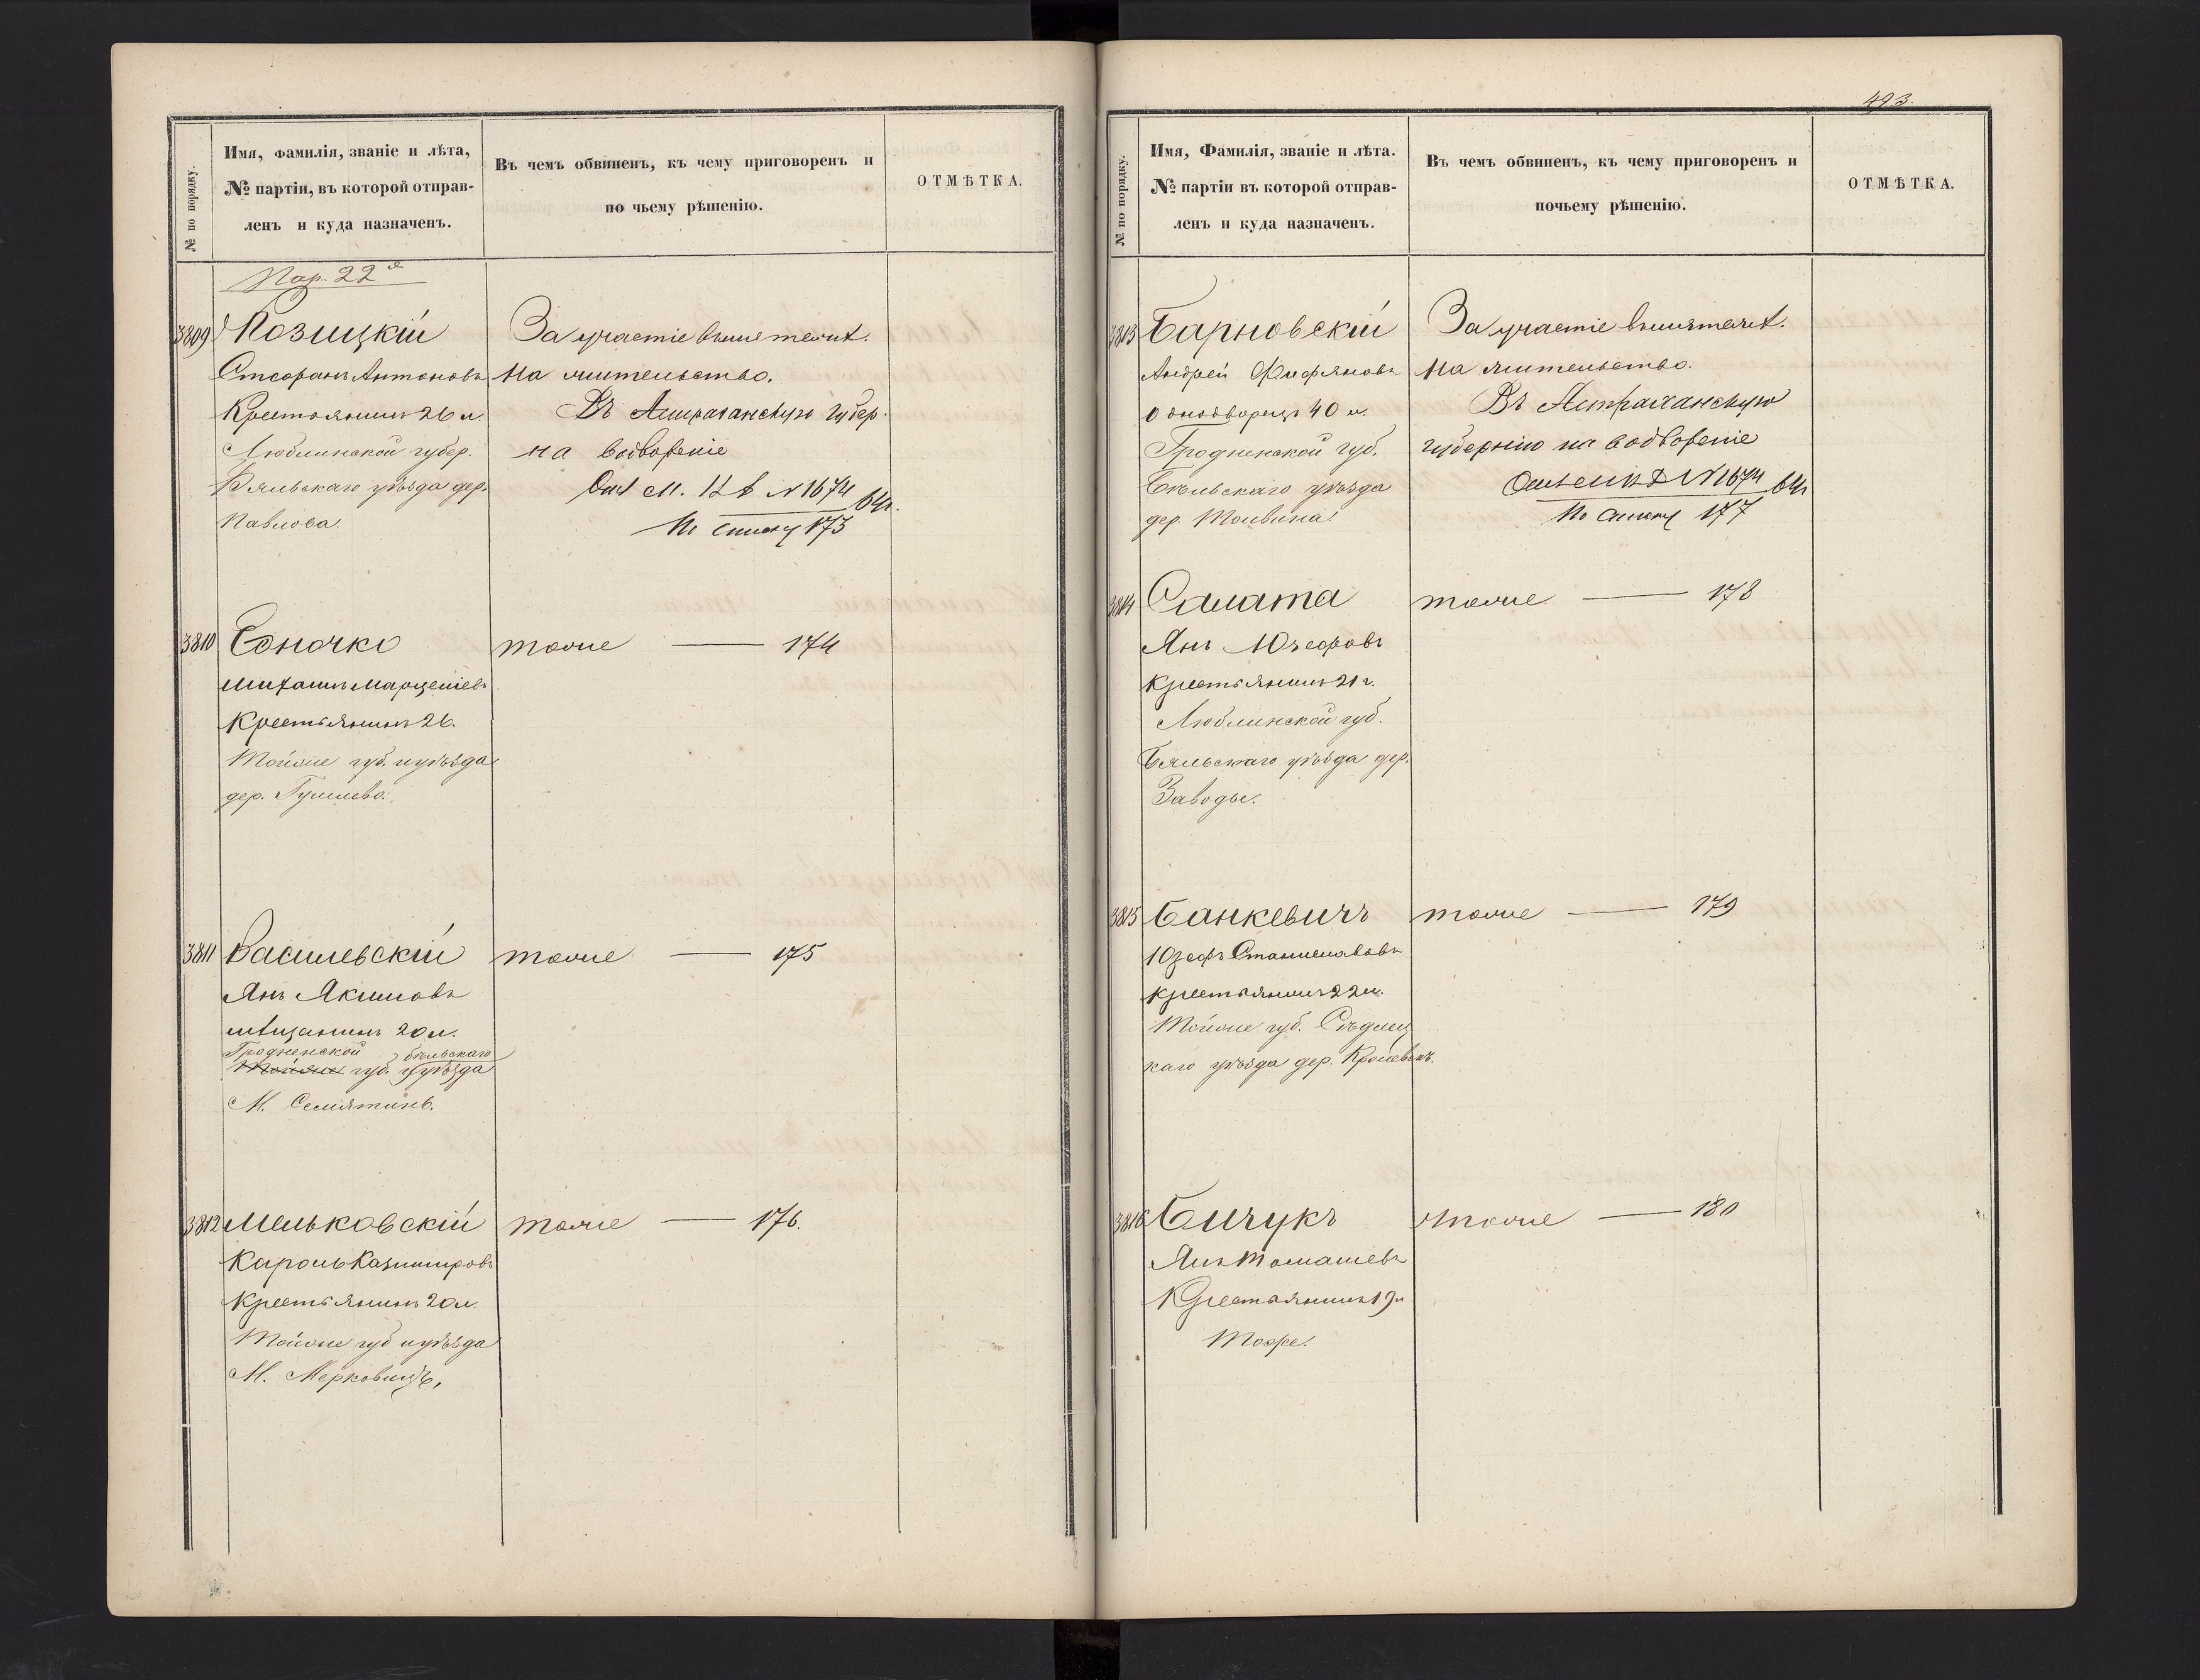 № по порядку.
Имя, фамилія, званіе и лѣта,
№ партіи, въ которой отправ-
ленъ и куда назначенъ.
Въ чемъ обвиненъ, къ чему приговоренъ и
по чьему рѣшенію.
ОТМѢТКА.
Пар. 22я
3809
Козицкій
Стефанъ Антоновъ
Крестьянинъ 26 л.
Люблинской губер.
Бяльскаго уѣзда дер.
Павлова.
За участіе въ мятежѣ.
На жительство.
Въ Астраханскую губер.
на водвореніе
№ 1674 64 г.
По списку 173
3810
Соночко
Михаилъ
Крестьянинъ 26.
Тойже губ. и уѣзда
дер.
тоже — 174
3811
Василевскій
Янъ Якимовъ
мѣщанинъ 20 л.
Гродненской бѣльскаго
Тойже губ. и уѣзда
М. Семятинъ.
тоже — 175
3812
Мельковскій
Кароль Казимировъ
Крестьянинъ 20 л.
Тойже губ и уѣзда
М.
тоже — 176.
493.
№ по порядку.
Имя, Фамилія, званіе и лѣта.
№ партіи въ которой отправ-
ленъ и куда назначенъ.
Въ чемъ обвиненъ, къ чему приговоренъ и
почьему рѣшенію.
ОТМѢТКА.
3813
Барновскій
Андрей
Однодворецъ 40 л.
Гродненской губ.
Бѣльскаго уѣзда
дер.
За участіе въ мятежѣ.
На жительство.
Въ Астраханскую
губернію на водвореніе
№ 1674 64 г.
По списку 177
3814
Самата
Янъ Юзефовъ
Крестьянинъ 21 г.
Люблинской губ.
Бяльскаго уѣзда дер.
Заводы.
тоже — 178
3815
Банкевичъ
Юзефъ Станиславовъ
Крестьянинъ 22 л.
Тойже губ. Сѣдлец
каго уѣзда дер.
тоже — 179
3816
Бичукъ
Янъ Томашевъ
Крестьянинъ 19 л
Тоже.
тоже — 180